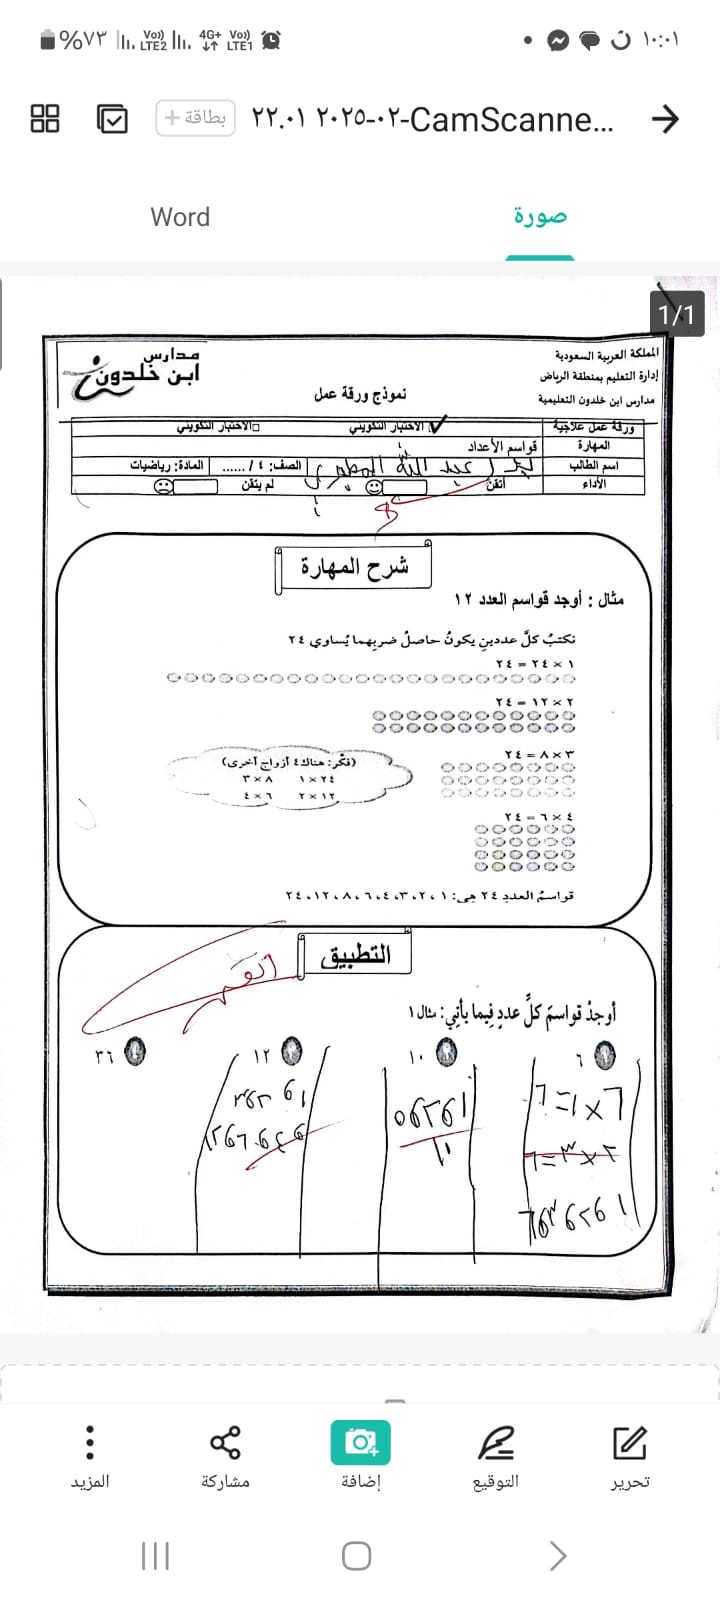 ١٠:٠١
%٧٣ Vo)) LTE2 4G+ Vo)) LTE1
CamScanne...-٠٢-٢٠٢٥ ٢٢.٠١
بطاقة +
صورة
Word
1/1
المملكة العربية السعودية
إدارة التعليم بمنطقة الرياض
مدارس ابن خلدون التعليمية
نموذج ورقة عمل
مدارس
ابن خلدون
ورقة عمل علاجية الاختبار التكويني الاختبار التكويني
المهارة قواسم الأعداد
اسم الطالب عبد الله الصف: ٤ / ...... المادة: رياضيات
الأداء أتقن لم يتقن
شرح المهارة
مثال : أوجد قواسم العدد ١٢
نكتبُ كلَّ عددينِ يكونُ حاصلُ ضربِهما يُساوي ٢٤
١ × ٢٤ = ٢٤
٢ × ١٢ = ٢٤
٣ × ٨ = ٢٤
(فكّر: هناك ٤ أزواج أخرى)
٢٤ × ١ ٨ × ٣
١٢ × ٢ ٦ × ٤
٤ × ٦ = ٢٤
قواسمُ العددِ ٢٤ هي: ١ ، ٢ ، ٣ ، ٤ ، ٦ ، ٨ ، ١٢ ، ٢٤
التطبيق
أتقن
أوجدْ قواسمَ كلِّ عددٍ فيما يأتي: مثال ١
٦
١٠
١٢
٣٦
٦ × ١ = ٦
٢ × ٣ = ٦
١ و ٢ و ٣ و ٦
١ و ٢ و ٥
١٠
١ و ٢ و ٣
و ٤ و ٦ و ١٢
تحرير
التوقيع
إضافة
مشاركة
المزيد